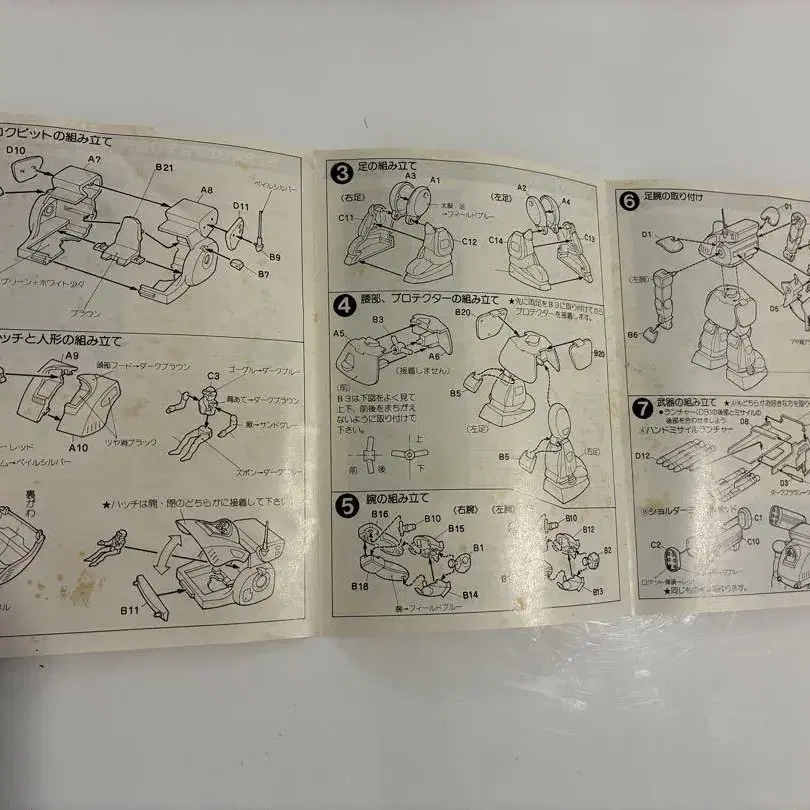 クピットの組み立て
D10
A7
B21
A8
D11
ペイルシルバー
B9
B7
グリーン+ホワイト少々
ブラウン
ッチと人形の組み立て
A9
頭部フード→ダークブラウン
C3
ゴーグル→ダークブルー
肩あて→ダークブラウン
服→サンドグレー
レッド
A10
ツヤ消ブラック
ム→ペイルシルバー
ズボン→ダークブルー
裏がわ
★ハッチは開・閉のどちらかに接着して下さい
B11
3 足の組み立て
A3
A1
(右足)
太股・足
→フィールドブルー
C11
C12
A2
(左足)
A4
C14
C13
4 腰部、プロテクターの組み立て
★先に両足をB3に取り付けてから
プロテクターを接着します。
A5
B3
A6
(接着しません)
B20
B20
(前)
B3は下図をよく見て
上下、前後をまちがえ
ないように取り付けて
下さい。
前
後
上
下
B5
(左足)
B5
(右足)
5 腕の組み立て
(右腕)
(左腕)
B16
B10
B15
B1
B18
B14
腕→フィールドブルー
B10
B12
B2
B13
6 足腕の取り付け
D1
D1
(左腕)
B6
D5
7 武器の組み立て
●ランチャー(D8)の後部とミサイルの
後部を合わせましょう
Aハンドミサイルランチャー
D8
D12
D3
ダークブラウン
C1
C2
C10
★同じもの